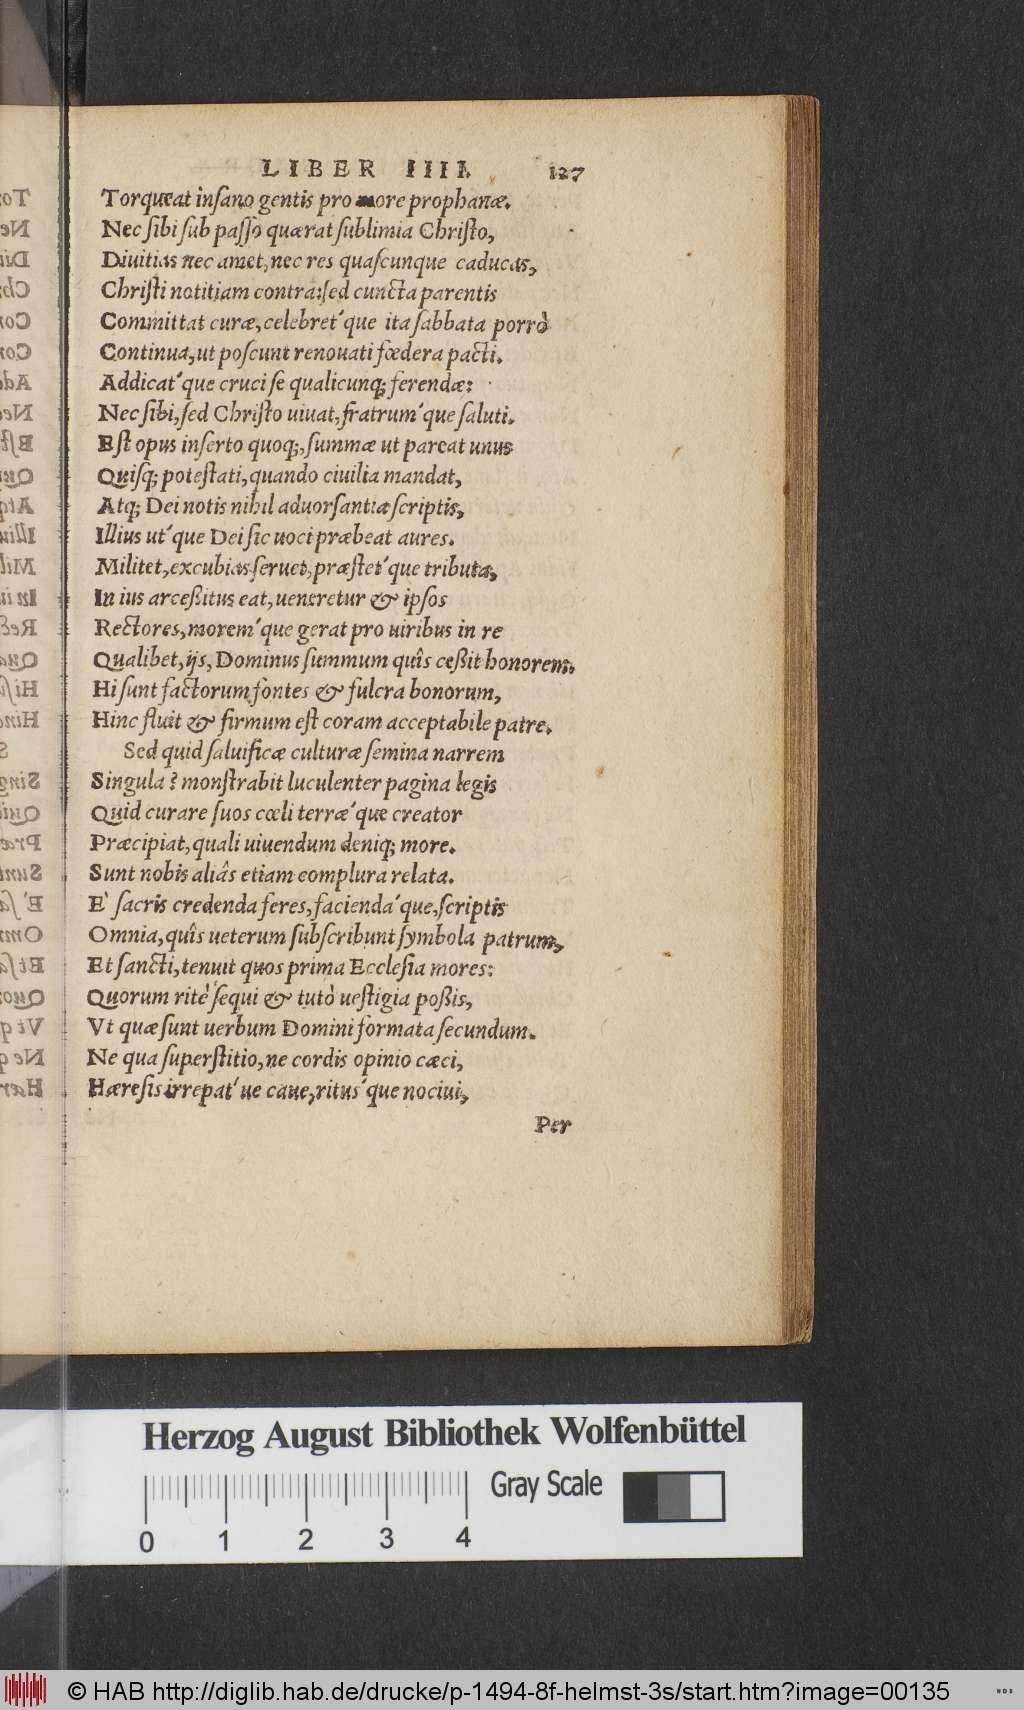 LIBER IIII. 127
Torqueat inſano gentis pro more prophanæ.
Nec ſibi ſub paſſo quærat ſublimia Chriſto,
Diuitias nec amet, nec res quaſcunque caducas,
Chriſti notitiam contra: ſed cuncta parentis
Committat curæ, celebret´que ita ſabbata porrò
Continua, ut poſcunt renouati fœdera pacti.
Addicat´que cruci ſe qualicunq; ferendæ:
Nec ſibi, ſed Chriſto uiuat, fratrum´que ſaluti.
Eſt opus inſerto quoq;, ſummæ ut pareat unus
Quiſq; poteſtati, quando ciuilia mandat,
Atq; Dei notis nihil aduorſantia ſcriptis,
Illius ut´que Dei ſic uoci præbeat aures.
Militet, excubias ſeruet, præſtet´que tributa,
In ius arceßitus eat, ueneretur & ipſos
Rectores, morem´que gerat pro uiribus in re
Qualibet, ijs, Dominus ſummum quîs ceßit honorem.
Hi ſunt factorum fontes & fulcra bonorum,
Hinc fluit & firmum eſt coram acceptabile patre.
Sed quid ſaluificæ culturæ ſemina narrem
Singula? monſtrabit luculenter pagina legis
Quid curare ſuos cœli terræ´que creator
Præcipiat, quali uiuendum deniq; more.
Sunt nobis aliâs etiam complura relata.
E` ſacris credenda feres, facienda´que, ſcriptis
Omnia, quîs ueterum ſubſcribunt ſymbola patrum,
Et ſancti, tenuit quos prima Eccleſia mores:
Quorum ritè ſequi & tutò ueſtigia poßis,
Vt quæ ſunt uerbum Domini formata ſecundum.
Ne qua ſuperſtitio, ne cordis opinio cæci,
Hæreſis irrepat´ue caue, ritus´que nociui,
Per
Herzog August Bibliothek Wolfenbüttel
Gray Scale
0 1 2 3 4
© HAB http://diglib.hab.de/drucke/p-1494-8f-helmst-3s/start.htm?image=00135